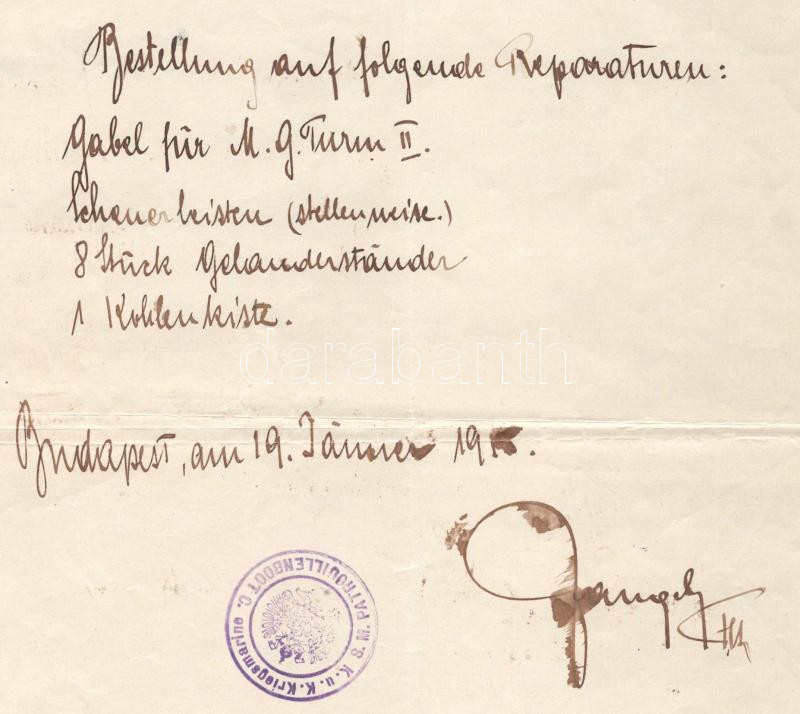 Bestellung auf folgende Reparaturen:
Gabel für M. G. Turm II.
Scheuerleisten (stellenweise.)
8 Stück Geländerständer
1 Kohlenkiste.
darabanth
Budapest, am 19. Jänner 19
K. u. K. Kriegsmarine. PATROUILLENBOOT C.